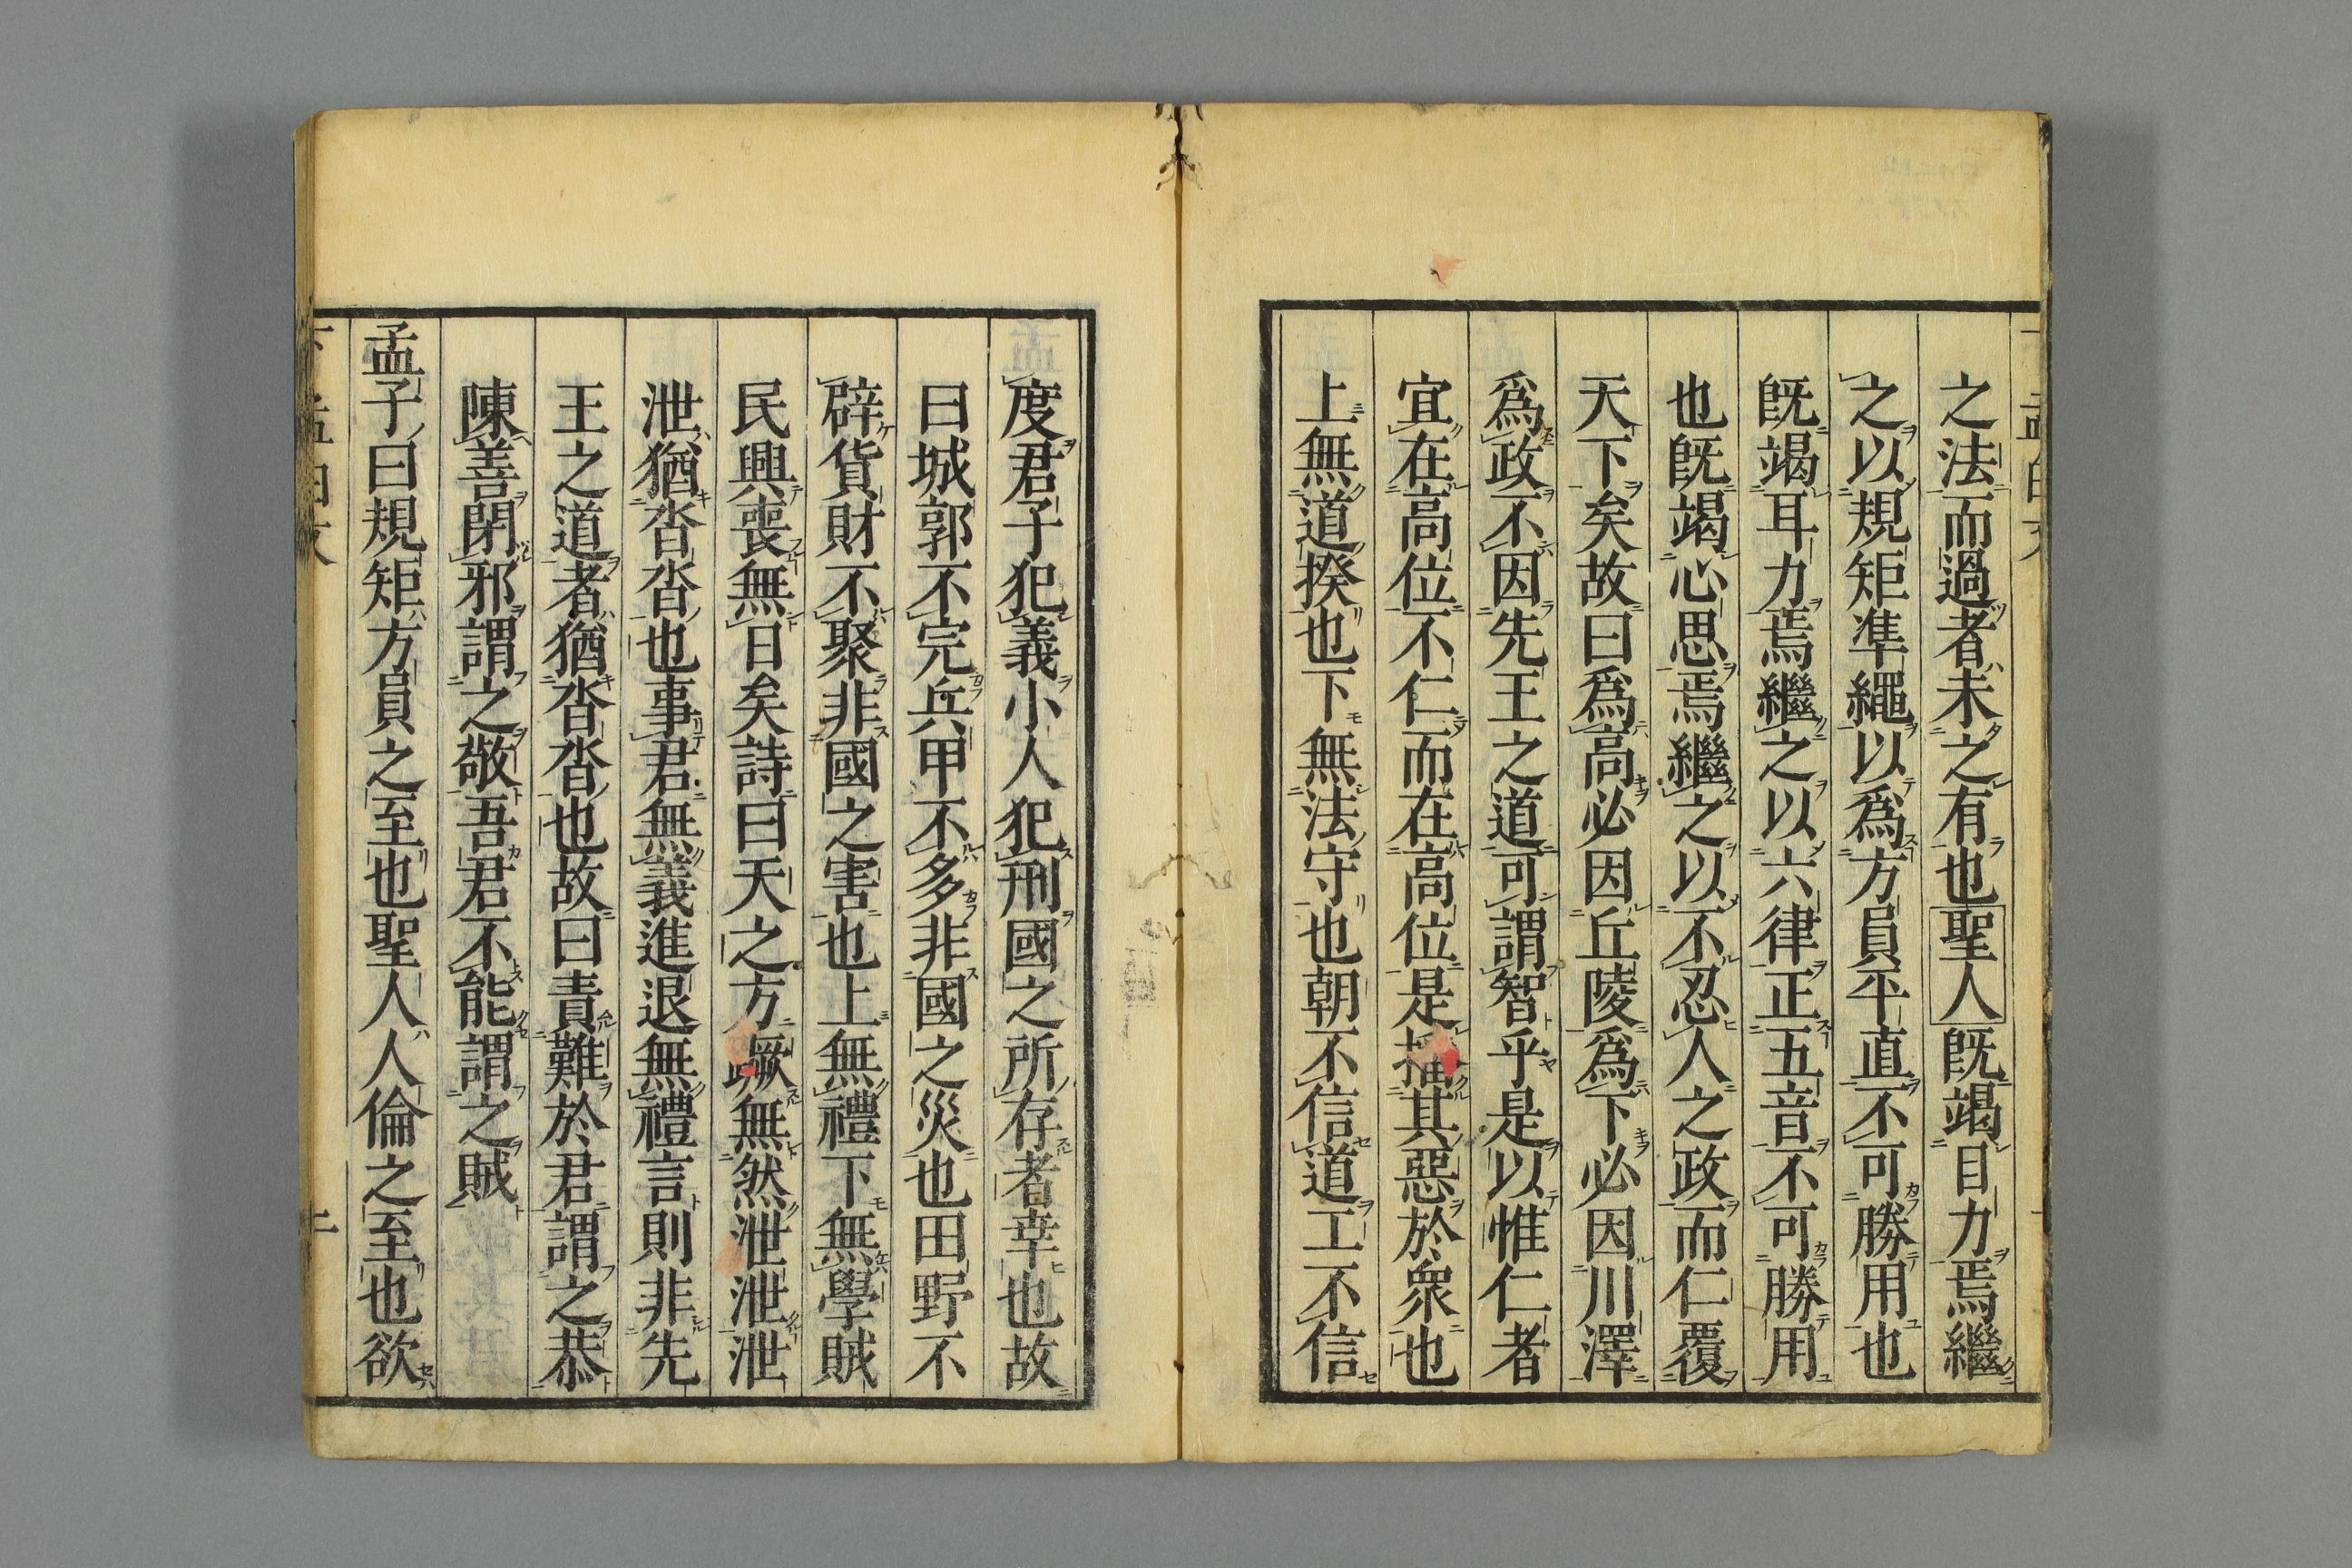 之法而過者未之有也聖人既竭目力焉繼
之以規矩準繩以爲方員平直不可勝用也
既竭耳力焉繼之以六律正五音不可勝用
也既竭心思焉繼之以不忍人之政而仁覆
天下矣故曰爲高必因丘陵爲下必因川澤
爲政不因先王之道可謂智乎是以惟仁者
宜在高位不仁而在高位是播其惡於衆也
上無道揆也下無法守也朝不信道工不信
度君子犯義小人犯刑國之所存者幸也故
曰城郭不完兵甲不多非國之災也田野不
辟貨財不聚非國之害也上無禮下無學賊
民興喪無日矣詩曰天之方蹶無然泄泄泄
泄猶沓沓也事君無義進退無禮言則非先
王之道者猶沓沓也故曰責難於君謂之恭
陳善閉邪謂之敬吾君不能謂之賊
孟子曰規矩方員之至也聖人人倫之至也欲